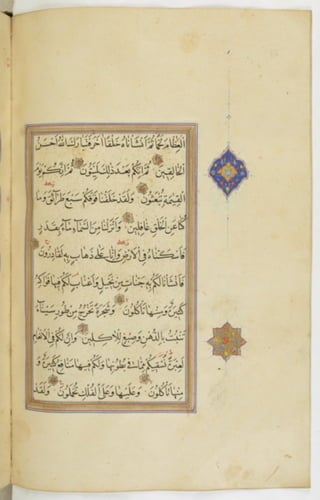 العظام لحما ثم انشأناه خلقا آخر فتبارك الله احسن
الخالقين ثم انكم بعد ذلك لميتون ثم انكم يوم
القيمة تبعثون ولقد خلقنا فوقكم سبع طرائق وما
كنا عن الخلق غافلين وانزلنا من السماء ماء بقدر
فاسكناه في الارض وانا على ذهاب به لقادرون
فانشأنا لكم به جنات من نخيل واعناب لكم فيها فواكه
كثيرة ومنها تأكلون وشجرة تخرج من طور سيناء
تنبت بالدهن وصبغ للاكلين وان لكم في الانعام
لعبرة نسقيكم مما في بطونها ولكم فيها منافع كثيرة و
منها تأكلون وعليها وعلى الفلك تحملون ولقد